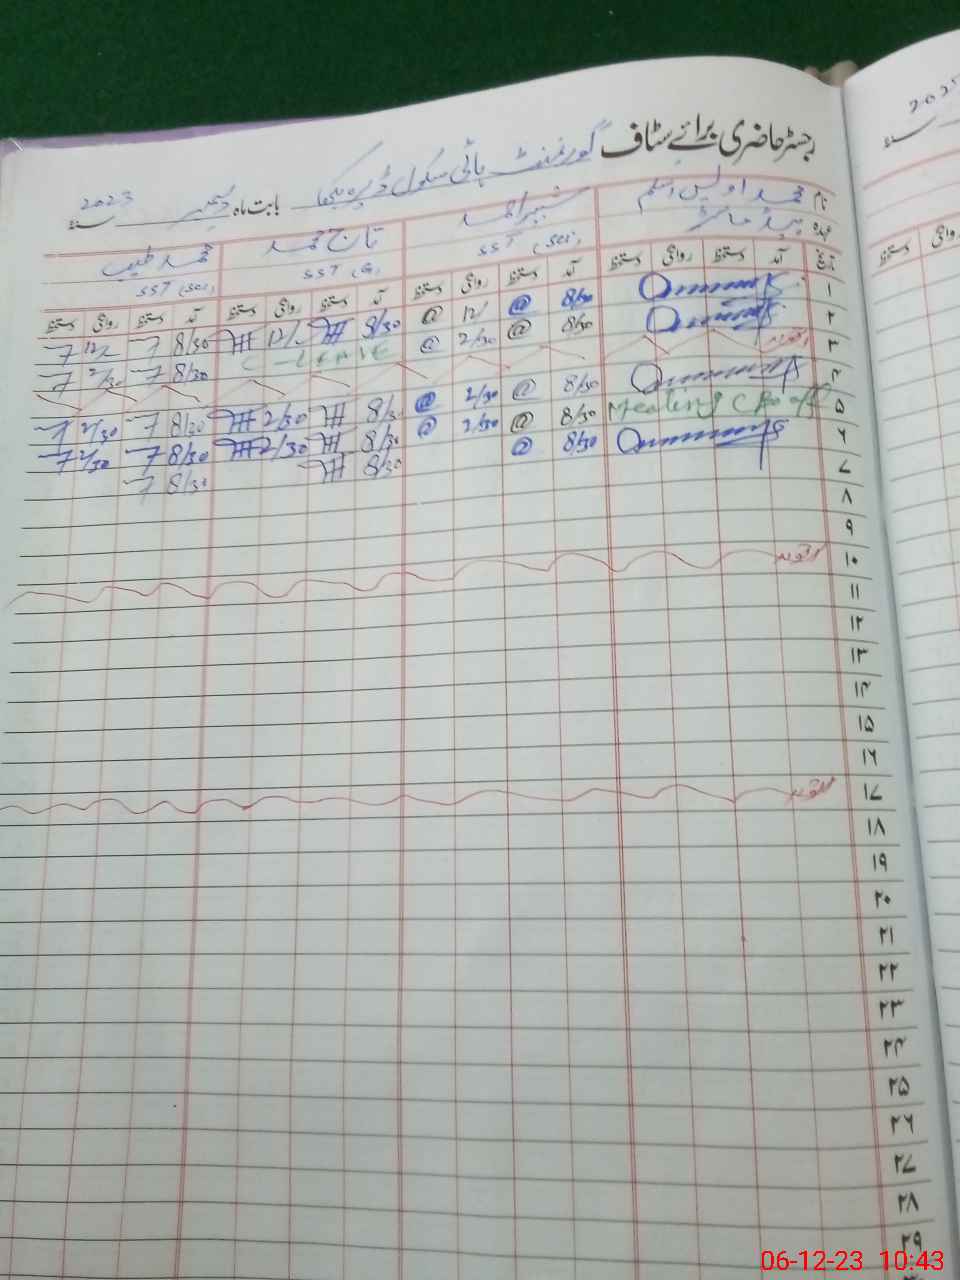 رجسٹر حاضری برائے سٹاف گورنمنٹ ہائی سکول ڈیرہ بگھا
بابت ماہ دسمبر سنہ 2023
نام محمد اویس اسلم شبیر احمد تاج محمد محمد طیب
عہدہ ہیڈ ماسٹر SST (Sci) SST (G) SST (Sci)
تاریخ آمد دستخط روانگی دستخط آمد دستخط روانگی دستخط آمد دستخط روانگی دستخط آمد دستخط روانگی دستخط
۱ 8/30 @ 12/ @ 8/30 12/ 8/30 7 12/ 7
۲ 8/30 @ 2/30 @ C-LEAVE 8/30 7 2/30 7
۳ اتوار
۴ 8/30 @ 2/30 @ 8/30 2/30 8/30 7 2/30 7
۵ Meeting CEO off 8/30 @ 2/30 @ 8/30 2/30 8/30 7 2/30 7
۶ 8/30 @ 8/30 8/30 7
۷
۸
۹
۱۰ اتوار
۱۱
۱۲
۱۳
۱۴
۱۵
۱۶
۱۷ اتوار
۱۸
۱۹
۲۰
۲۱
۲۲
۲۳
۲۴
۲۵
۲۶
۲۷
۲۸
۲۹
06-12-23 10:43